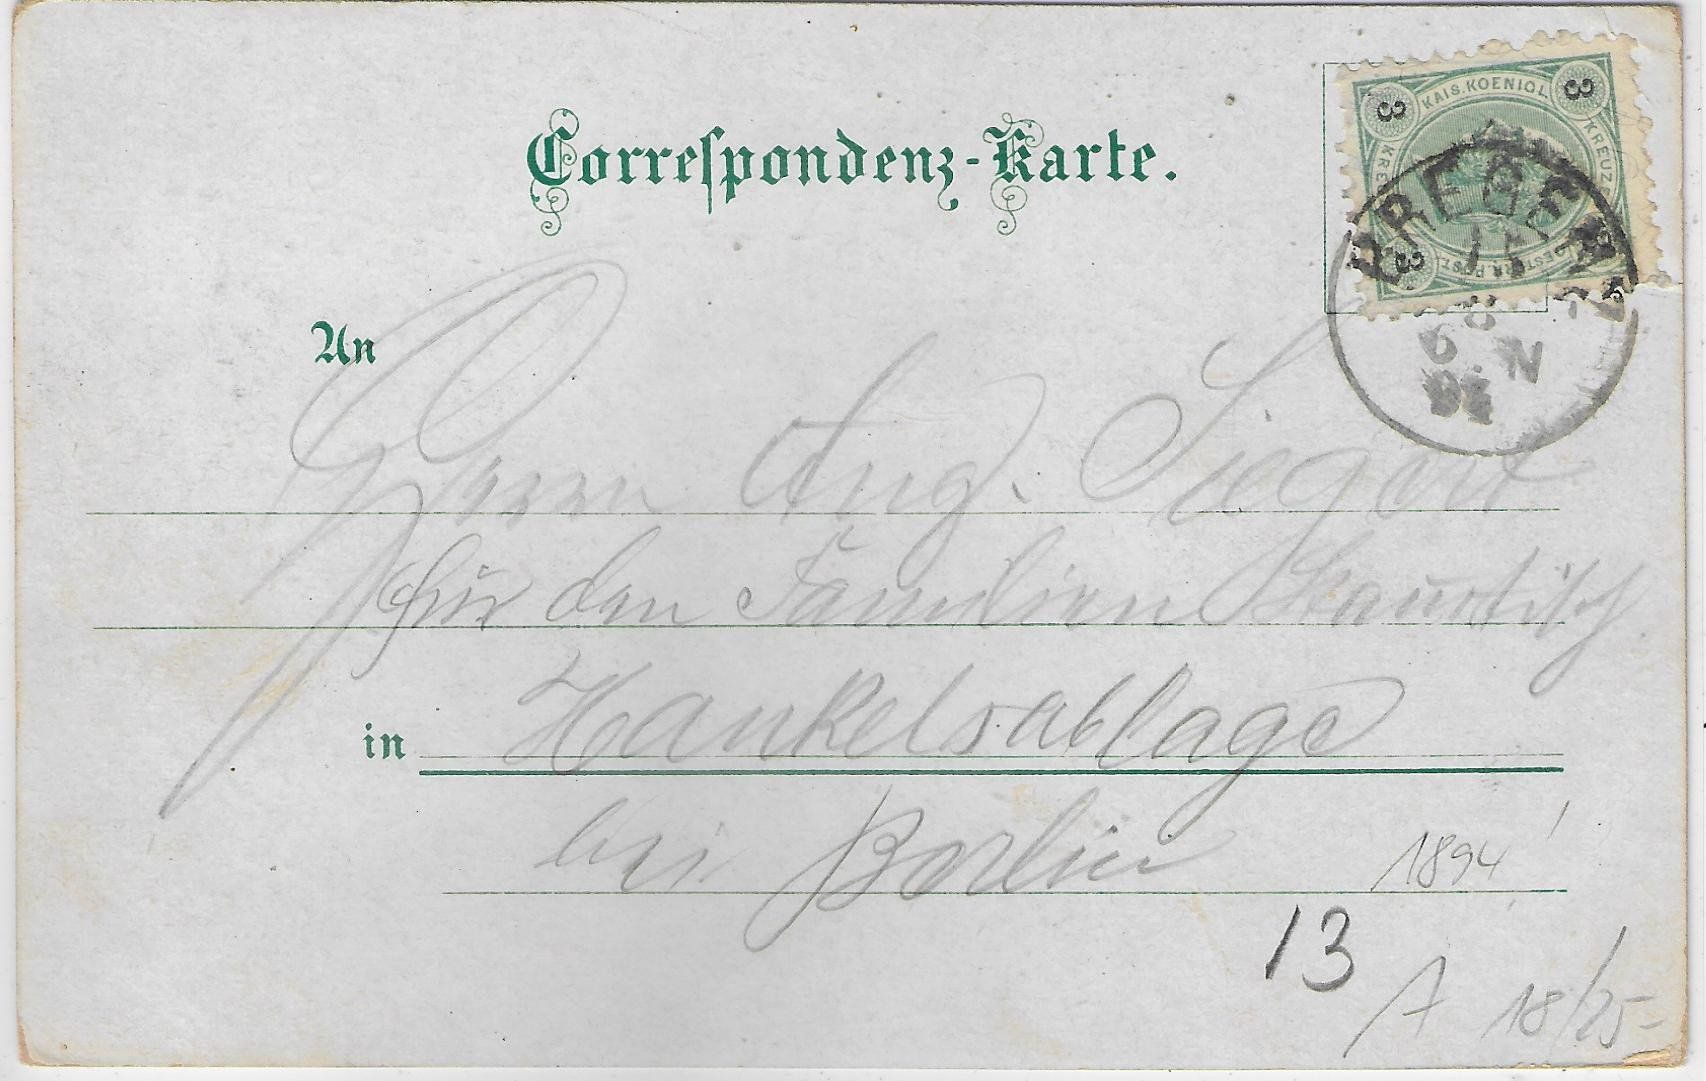 Correspondenz-Karte.
KAIS. KOENIGL.
3 3
KREUZER
OESTERR. POST.
3
BREGENZ
6 N
An
Herrn Aug. Siegert
für den Familien
in Hankelsablage
bei Berlin
1894
13
A 18/25-